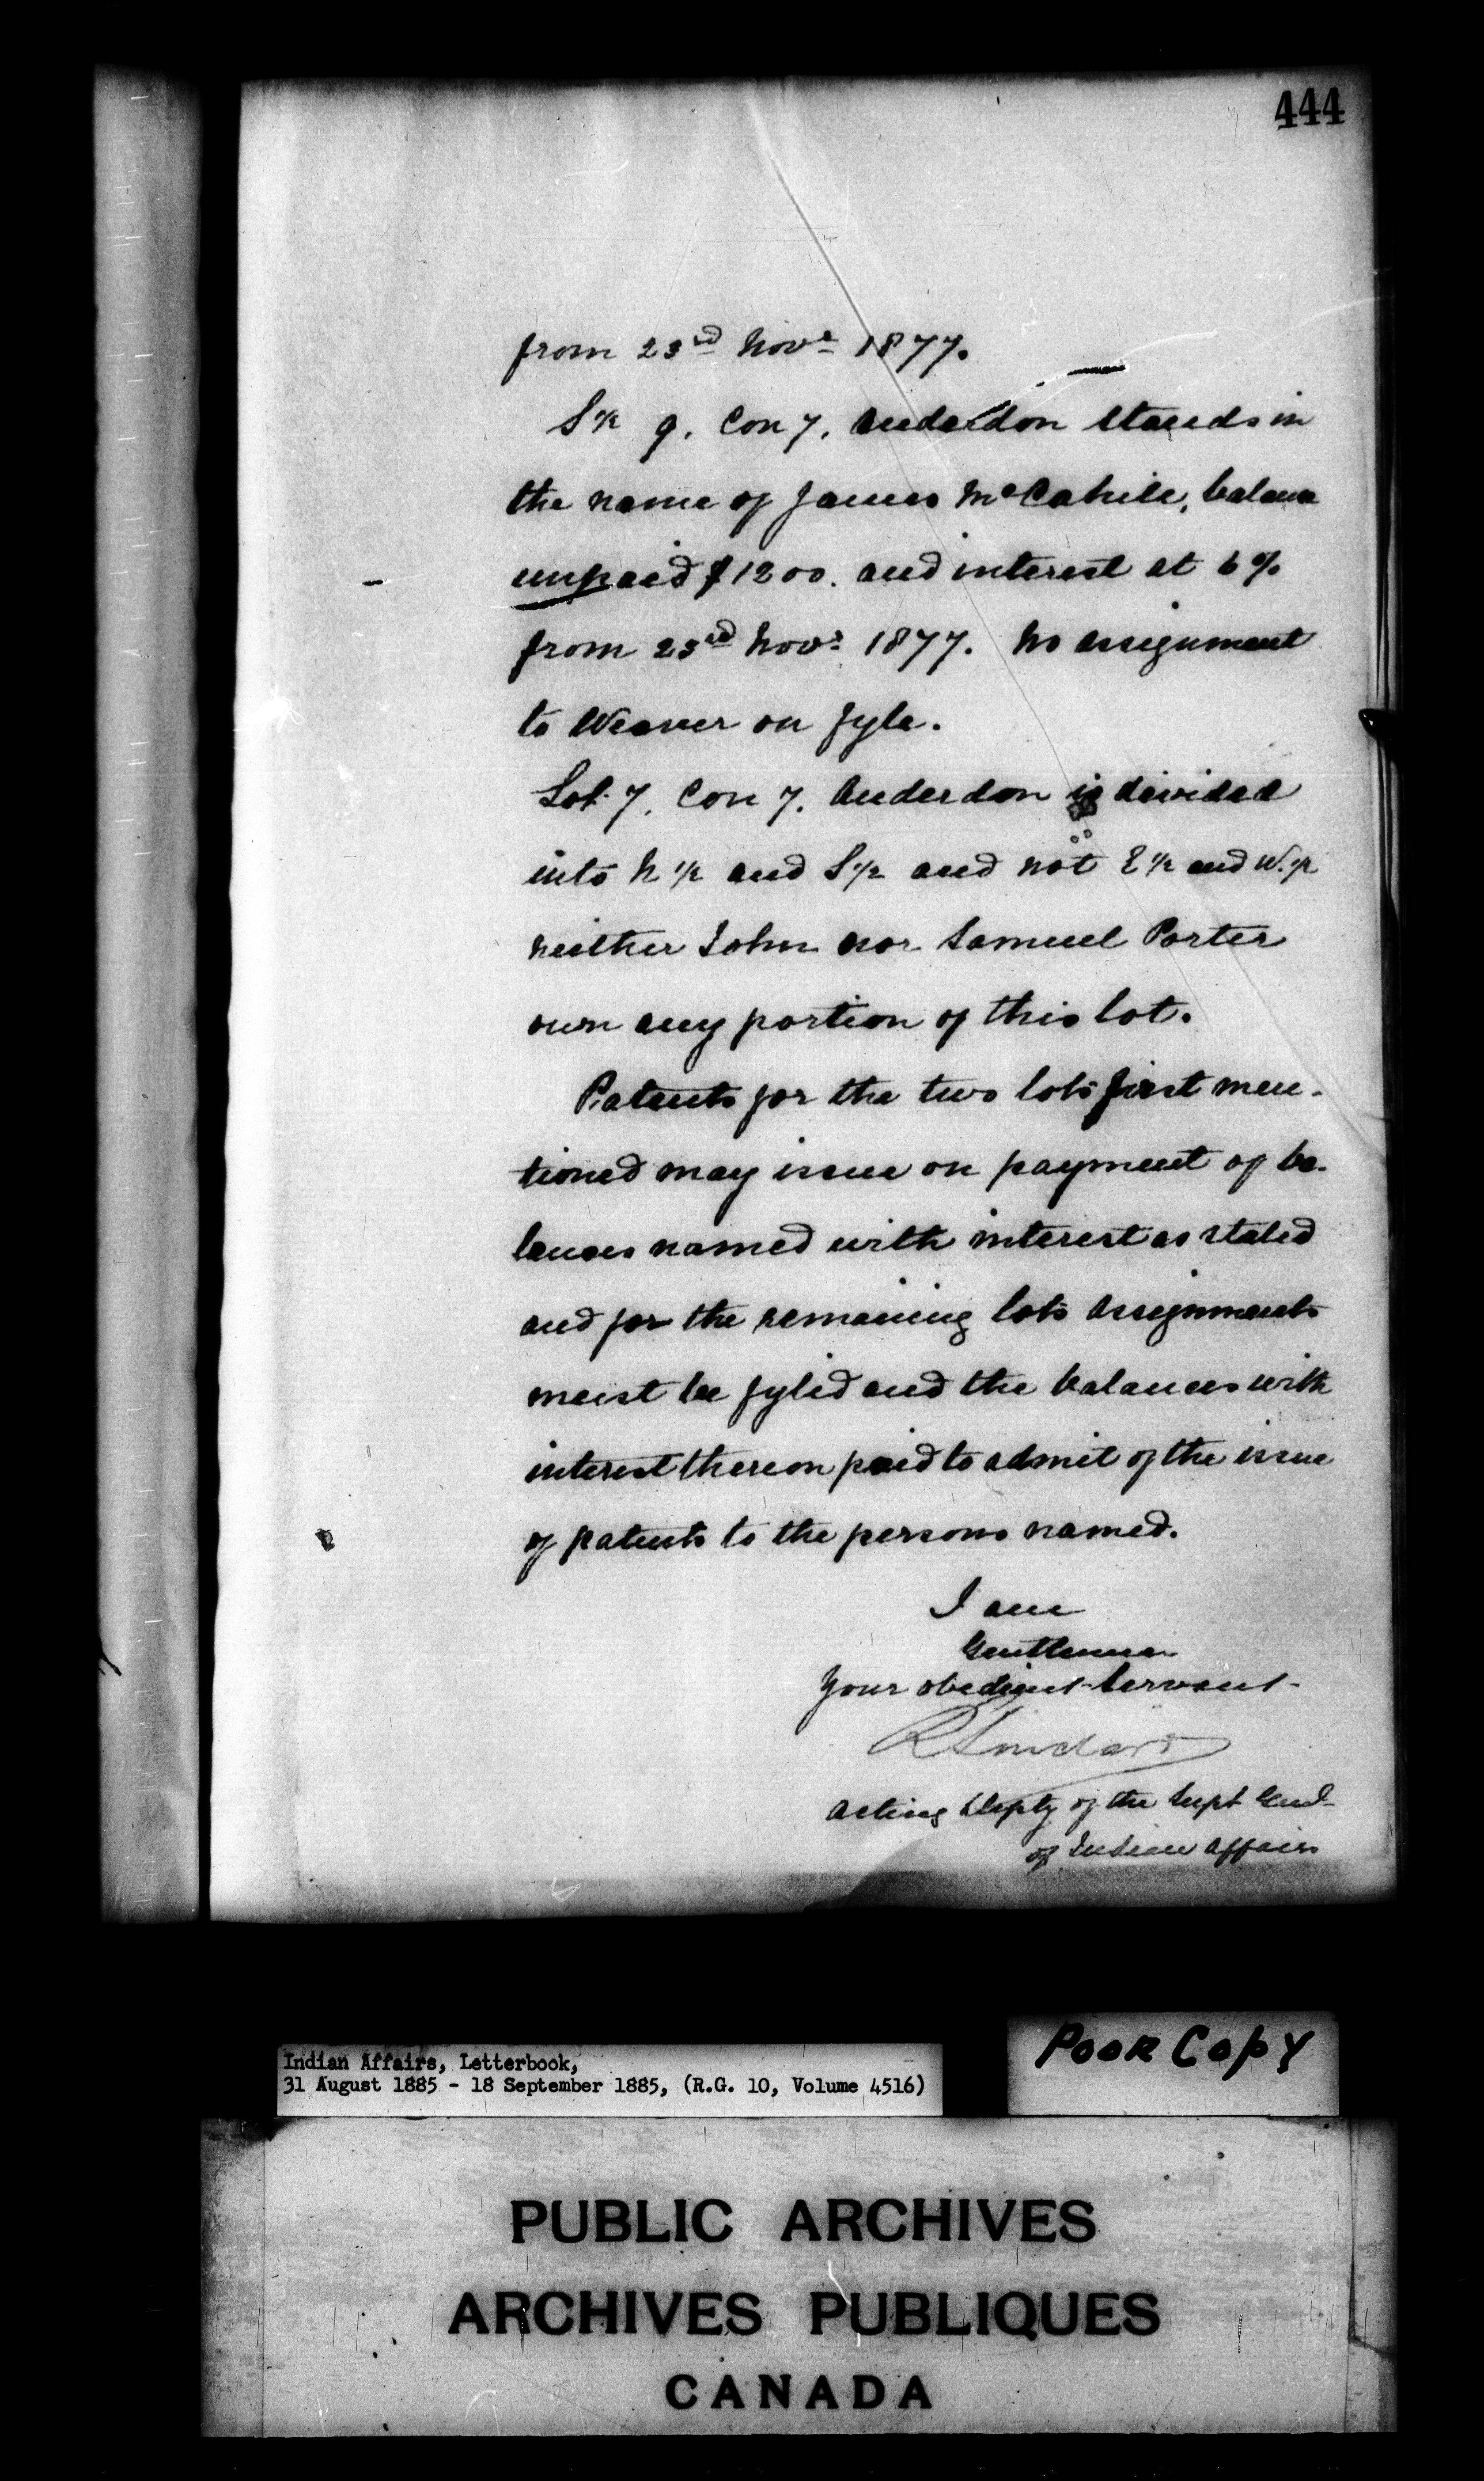 444
from 23rd Novr 1877.
S½ 9. Con 7. Anderdon stands in
the name of James McCahill, balance
unpaid $1200. and interest at 6%
from 23rd Novr 1877. No assignment
to Weaver on fyle.
Lot 7. Con 7. Anderdon is divided
into N ½ and S½ and not E½ and W.½
neither John nor Samuel Porter
own any portion of this lot.
Patents for the two lots first men-
tioned may issue on payment of ba-
lances named with interest as stated
and for the remaining lots assignments
must be fyled and the balances with
interest thereon paid to admit of the issue
of patents to the persons named.
I am
Gentlemen
Your obedient Servant
R Sinclair
Acting Depty of the Supt Genl
of Indian Affairs
Indian Affairs, Letterbook,
31 August 1885 - 18 September 1885, (R.G. 10, Volume 4516)
POOR COPY
PUBLIC ARCHIVES
ARCHIVES PUBLIQUES
CANADA